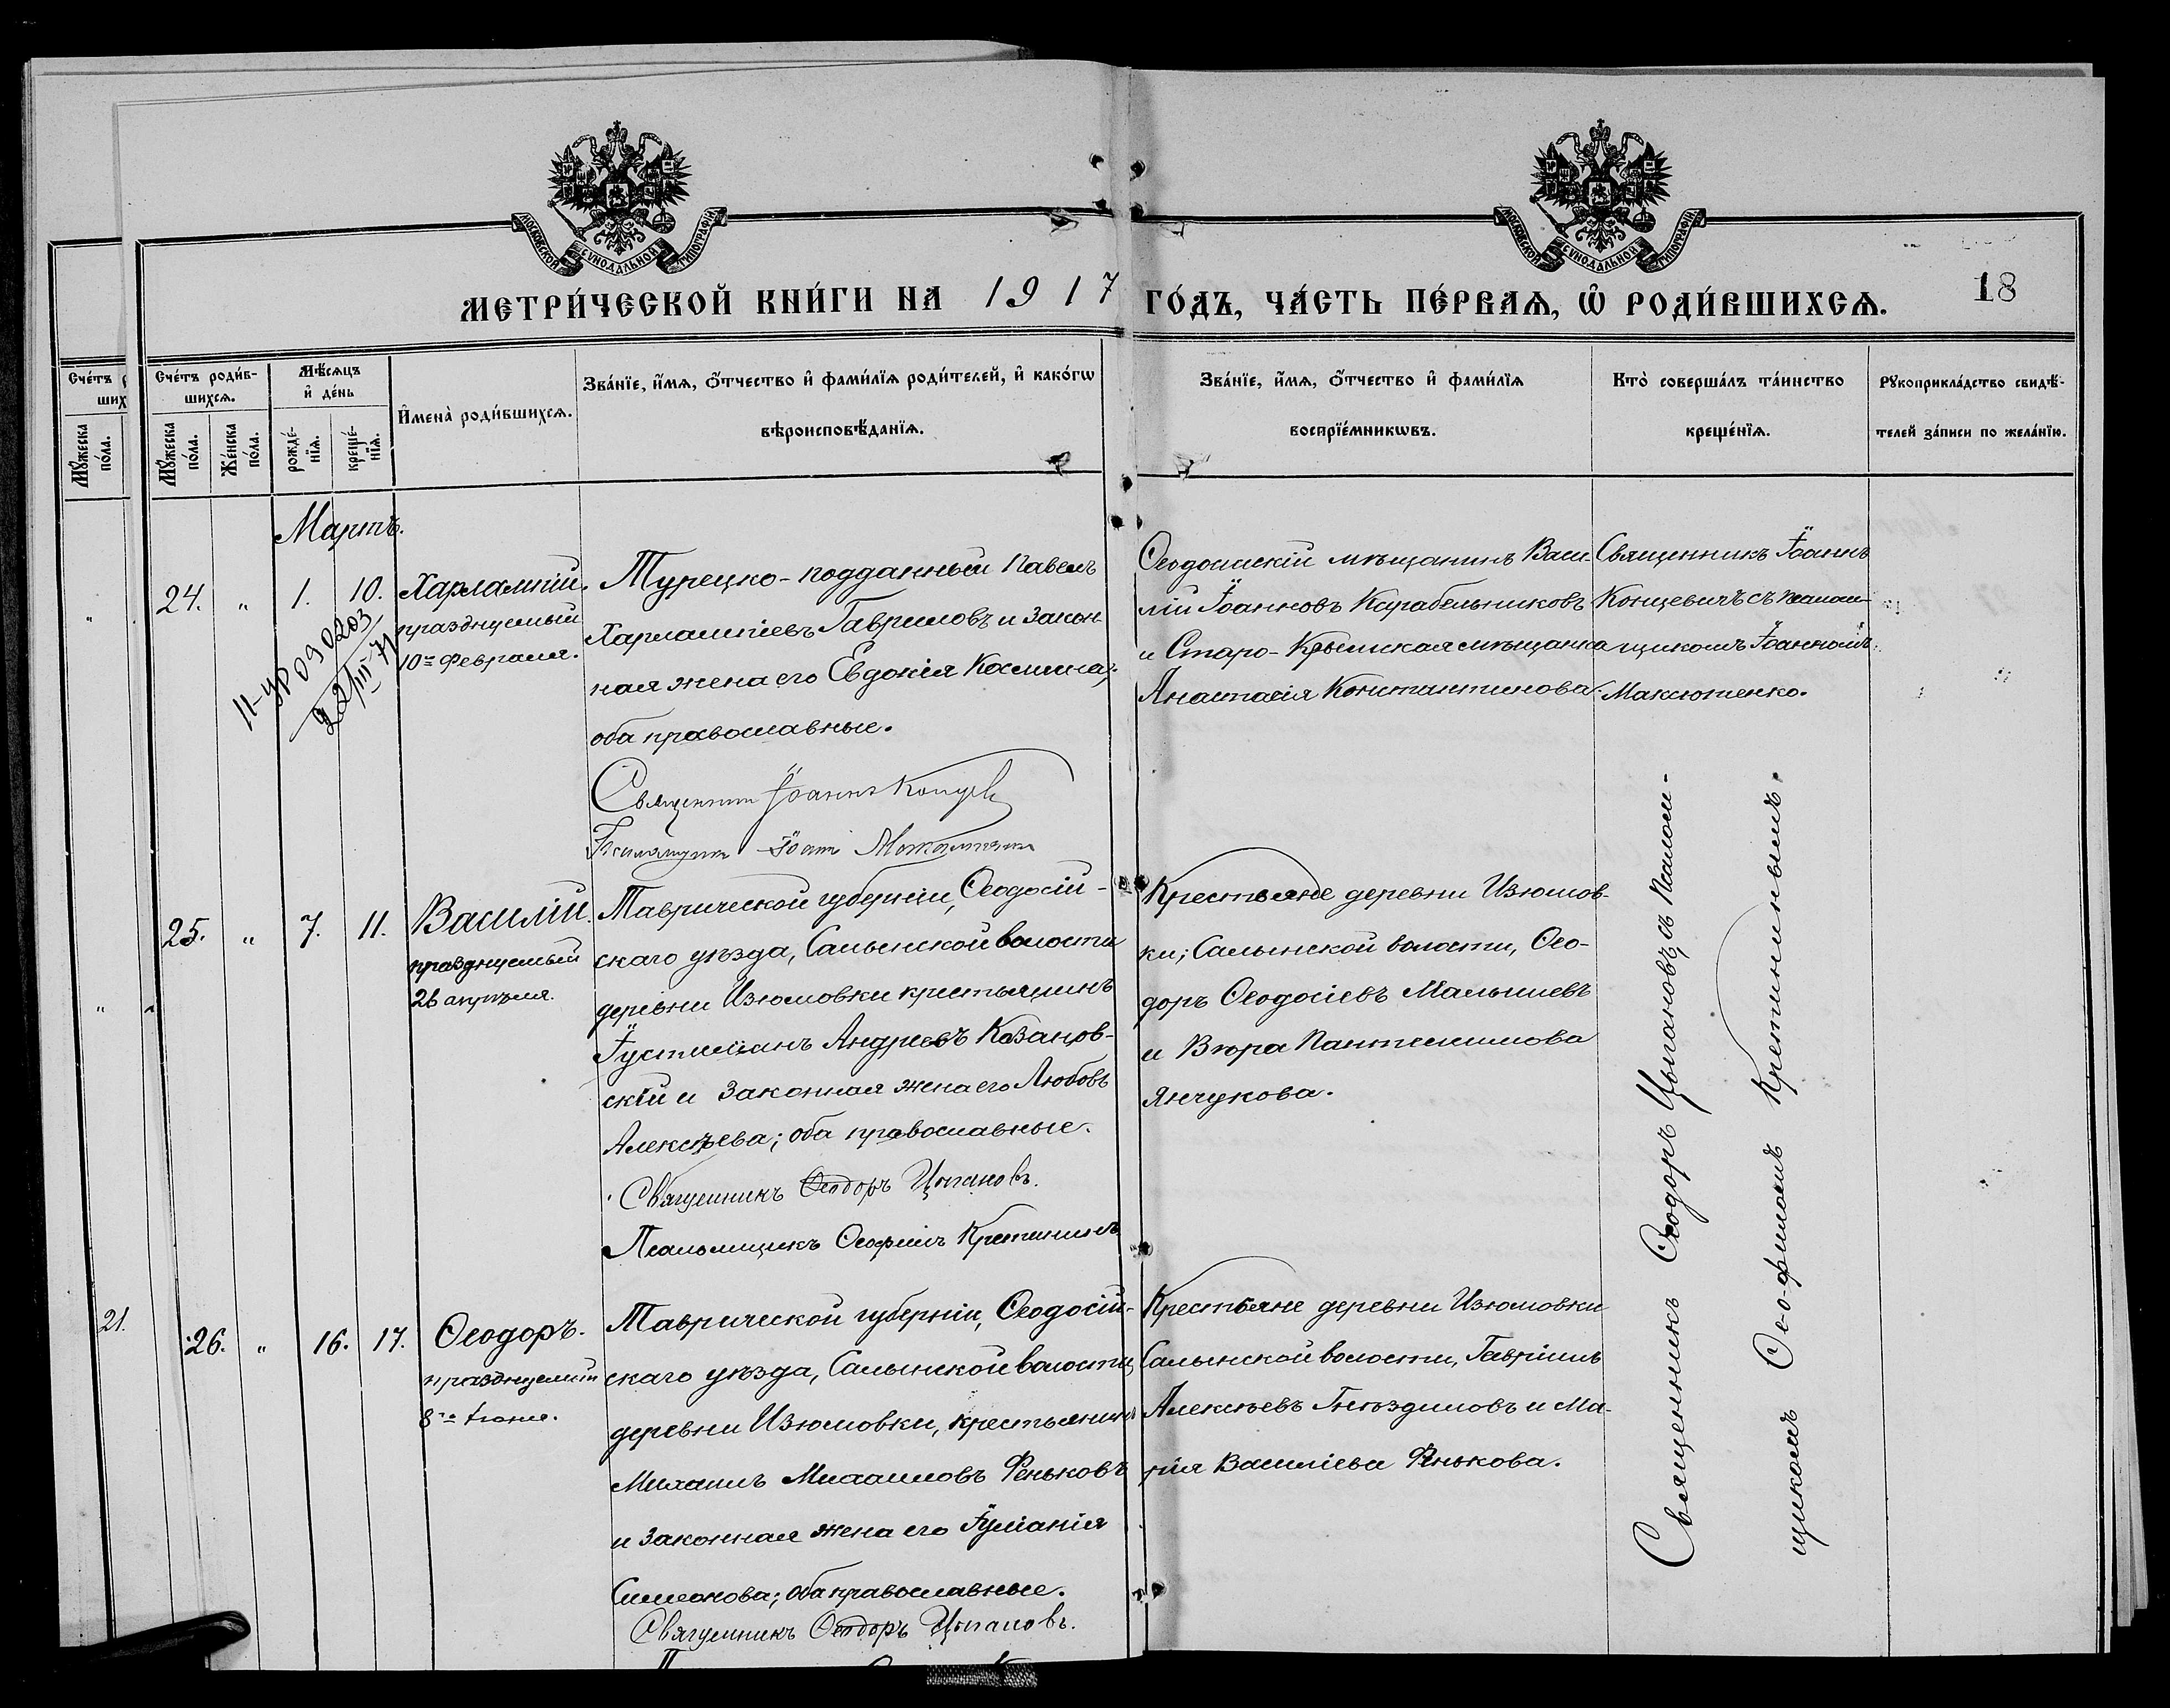 МОСКОВСКОЙ СѴНОДАЛЬНОЙ ТИПОГРАФІИ
МОСКОВСКОЙ СѴНОДАЛЬНОЙ ТИПОГРАФІИ
МЕТРИ́ЧЕСКОЙ КНИ́ГИ НА 1917 ГО́ДЪ, ЧА́СТЬ ПЕ́РВАѦ, Ѽ РОДИ́ВШИХСѦ.
18
Сче́тъ
ших
Мꙋ́жеска по́ла.
Сче́тъ роди́в-
шихсѧ.
Мꙋ́жеска по́ла.
Же́нска по́ла.
Мѣ́сѧцъ
и҆ де́нь
рожде́-
нїѧ.
креще́-
нїѧ.
И҆мена̀ роди́вшихсѧ.
Зва́нїе, и҆́мѧ, ѻ҆́тчество и҆ фами́лїѧ роди́телей, и҆ како́гѡ
вѣроисповѣ́данїѧ.
Зва́нїе, и҆́мѧ, ѻ҆́тчество и҆ фами́лїѧ
воспрїе́мникѡвъ.
Кто̀ соверша́лъ та́инство
креще́нїѧ.
Рꙋкоприкла́дство свидѣ́-
телей за́писи по жела́нїю.
Мартъ.
24. " 1. 10.
Харлампій.
празднуемый
10го февраля.
11-УР 090203
22/III-71
Турецко-подданный Павелъ
Харлампіевъ Гавриловъ и закон
ная жена его Евдокія Космина;
оба православные.
Священникъ Іоаннъ
Іоаннъ
Ѳеодосійскій мѣщанинъ Васи-
лій Іоанновъ Карабельниковъ
и Старо-Крымская мѣщанка
Анастасія Константинова.
Священникъ Іоаннъ
Концевичъ съ псалом-
щикомъ Іоанномъ
Максютенко.
25. " 7. 11.
Василій.
празднуемый
26 апрѣля.
Таврической губерніи, Ѳеодосій-
скаго уѣзда, Салынской волости
деревни Изюмовки крестьянинъ
Іустиніанъ Андреевъ Казанов-
скій и законная жена его Любовь
Алексѣева; оба православные.
Священникъ Ѳеодоръ Цыгановъ.
Псаломщикъ Ѳеофилъ Кретининъ
Крестьяне деревни Изюмов-
ки; Салынской волости, Ѳео-
доръ Ѳеодосіевъ Малышевъ
и Вѣра Пантелиимова
Янчукова.
Священникъ Ѳеодоръ Цыгановъ съ псалом-
щикомъ Ѳеофиломъ Кретининымъ.
21.
26. " 16. 17.
Ѳеодоръ.
празднуемый
8го Іюня.
Таврической губерніи, Ѳеодосій-
скаго уѣзда, Салынской волости,
деревни Изюмовки, крестьянинъ
Михаилъ Михаиловъ Феньковъ
и законная жена его Іуліанія
Симеонова; оба православные.
Священникъ Ѳеодоръ Цыгановъ.
Крестьяне деревни Изюмовки
Салынской волости, Гавріилъ
Алексѣевъ Гнѣздиловъ и Ма-
рія Василіева Фенькова.